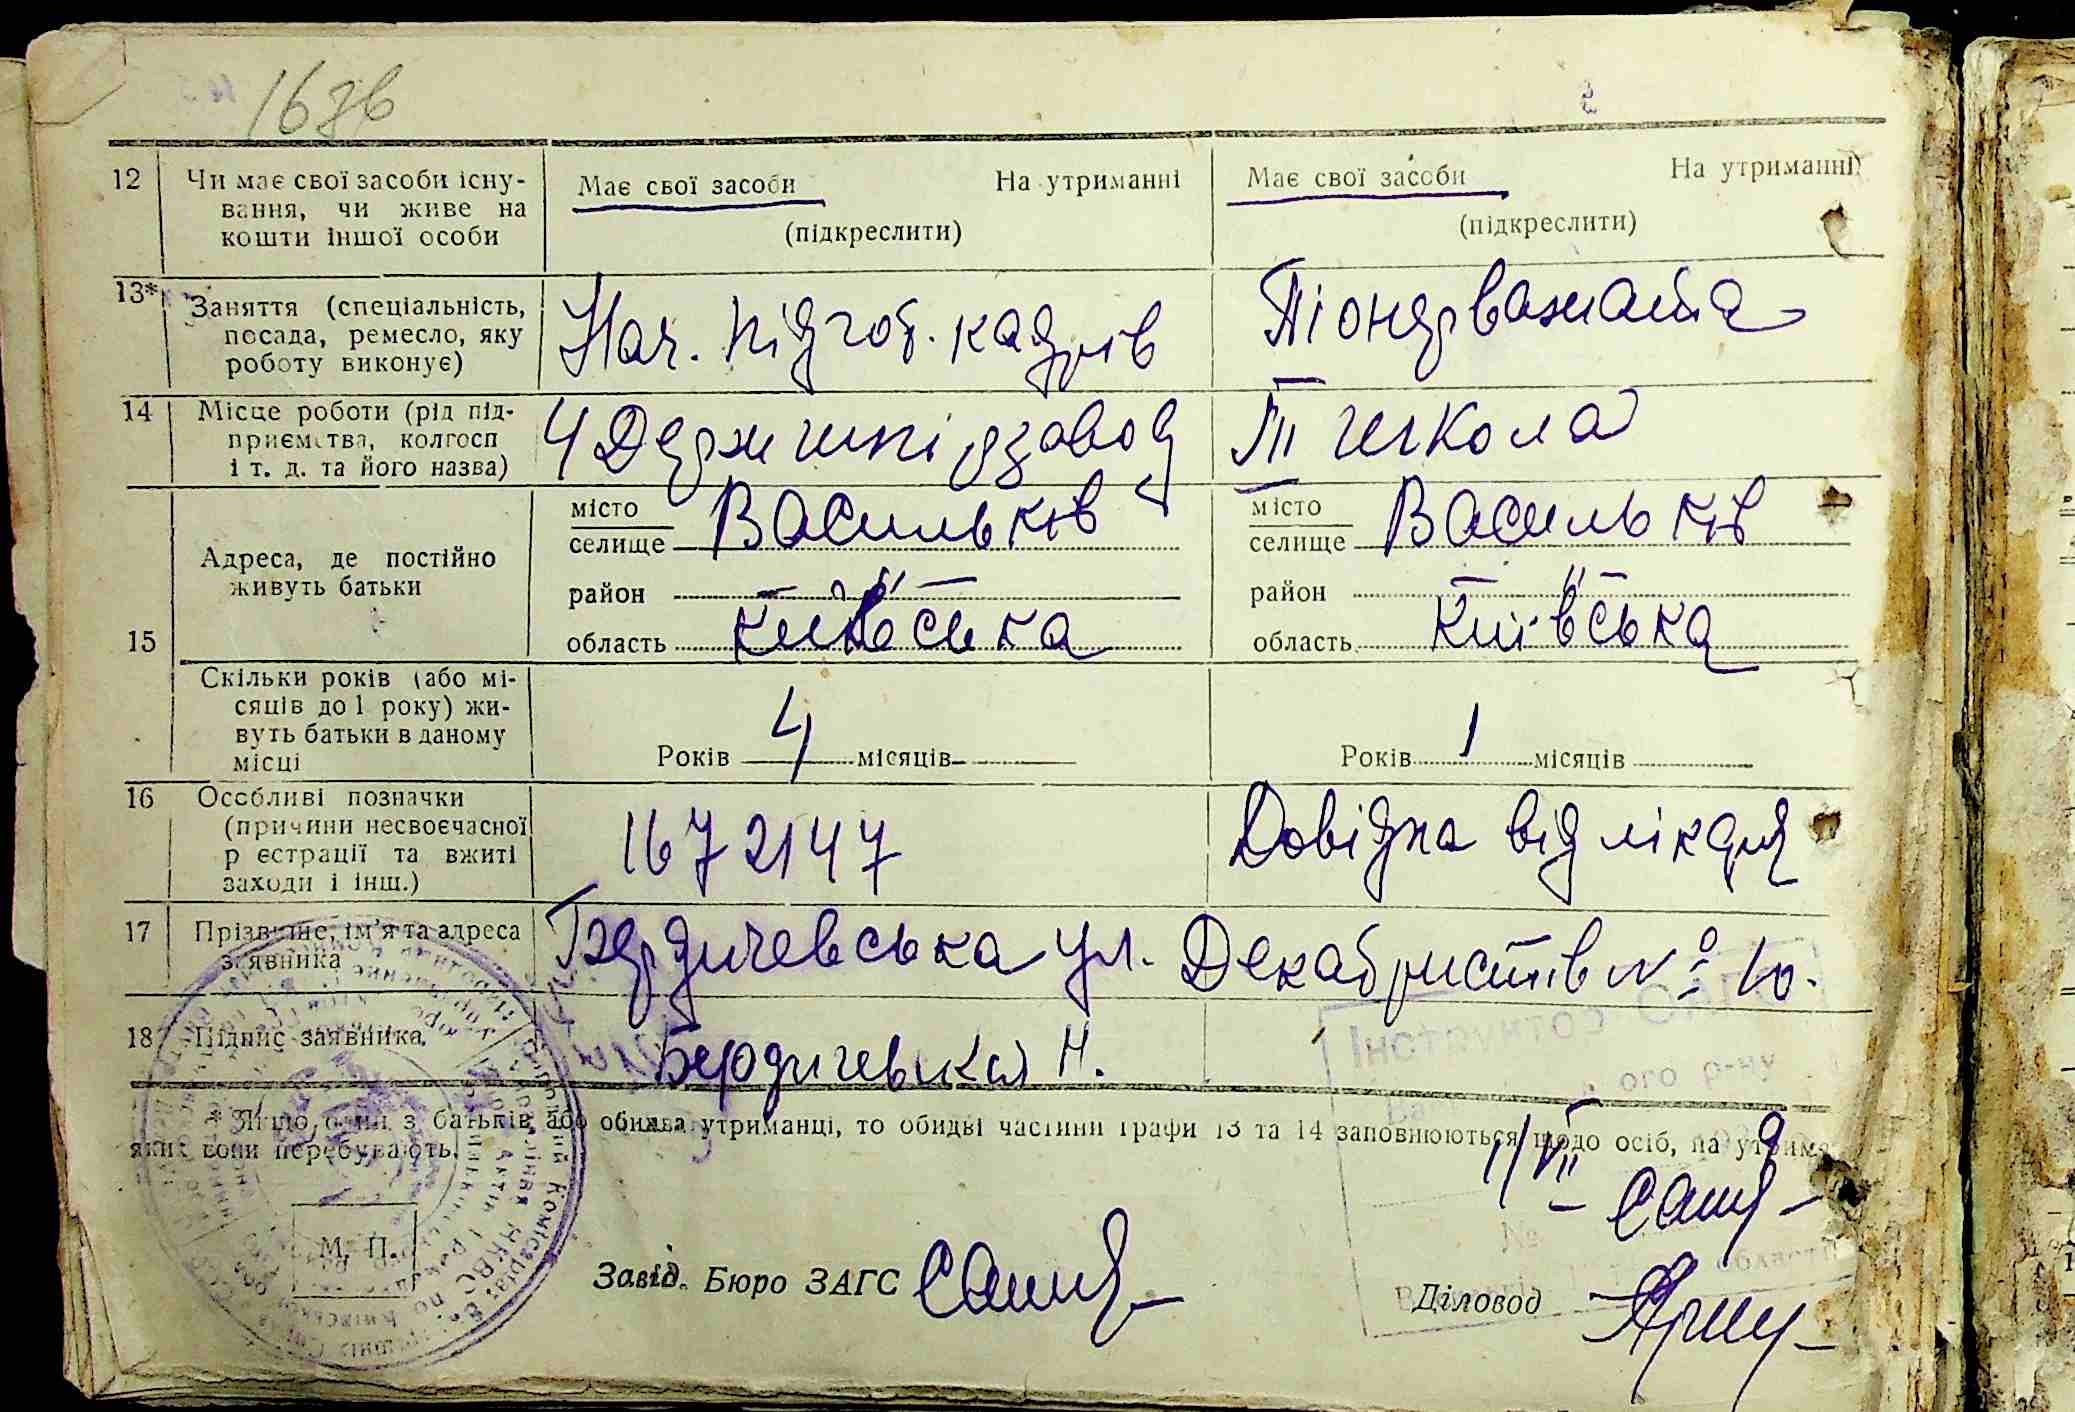 167в
12 Чи має свої засоби існу-
вання, чи живе на
кошти іншої особи
Має свої засоби На утриманні
(підкреслити)
Має свої засоби На утриманні
(підкреслити)
13* Заняття (спеціальність,
посада, ремесло, яку
роботу виконує)
Нач. підгот. кадрів
Піонервожата
14 Місце роботи (рід під-
приємства, колгосп
і т. д. та його назва)
4 Держшкірзавод
III школа
15 Адреса, де постійно
живуть батьки
місто
селище Васильків
район
область Київська
місто
селище Васильків
район
область Київська
Скільки років (або мі-
сяців до 1 року) жи-
вуть батьки в даному
місці
Років 4 місяців
Років 1 місяців
16 Особливі позначки
(причини несвоєчасної
р єстрації та вжиті
заходи і інш.)
1672147
Довідка від лікаря
17 Прізвище, ім'я та адреса
заявника
Бердичевська ул. Декабристів № 10.
18 Підпис заявника
Бердичевская Н.
* Якщо один з батьків або обидва утриманці, то обидві частини графи 13 та 14 заповнюються щодо осіб, на утрима
яких вони перебувають.
Інструктор
ого р-ну
11/VII
М. П.
Завід. Бюро ЗАГС
№
області
Діловод